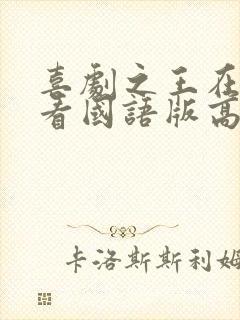 喜劇之王在
看國語版高
卡洛斯斯利姆